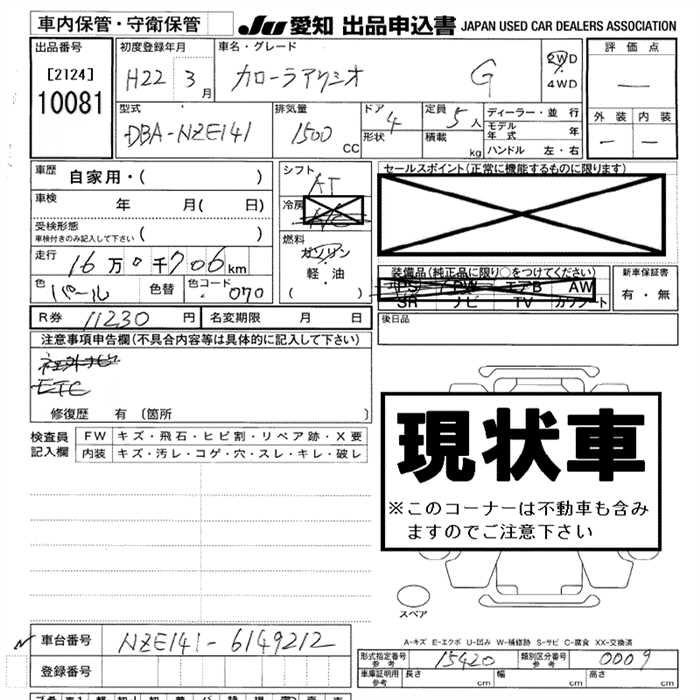 車内保管・守衛保管 JU 愛知 出品申込書 JAPAN USED CAR DEALERS ASSOCIATION
出品番号 初度登録年月 車名・グレード 評価点
[2124] H22 3月 カローラアクシオ G 2WD 4WD —
10081
型式 排気量 ドア 4 定員 5人 ディーラー・並行 外装 内装
DBA-NZE141 1500 CC 形状 積載 kg モデル年式 年 — —
ハンドル 左・右
車歴 自家用・( ) シフト AT セールスポイント(正常に機能するものに限ります)
車検 年 月( 日) 冷房 A/C
受検形態 車検付きのみ記入して下さい ( ) 燃料 ガソリン
走行 16万0千706km 軽・油 装備品(純正品に限り○をつけてください) 新車保証書
色 パール 色替 色コード 070 ( ) PS PW エアB AW 有・無
SR ナビ TV カワシート
R券 11230 円 名変期限 月 日 後日品
注意事項申告欄(不具合内容等は具体的に記入して下さい)
ETC
修復歴 有 〔箇所 〕
検査員 FW キズ・飛石・ヒビ割・リペア跡・X要
記入欄 内装 キズ・汚レ・コゲ・穴・スレ・キレ・破レ
現状車
※このコーナーは不動車も含み
ますのでご注意下さい
スペア
A-キズ E-エクボ U-凹み W-補修跡 S-サビ C-腐食 XX-交換済
車台番号 NZE141-6149212
型式指定番号 参考 15420 類別区分番号 参考 0009
登録番号 車庫証明用 参考 長さ cm 幅 cm 高さ cm